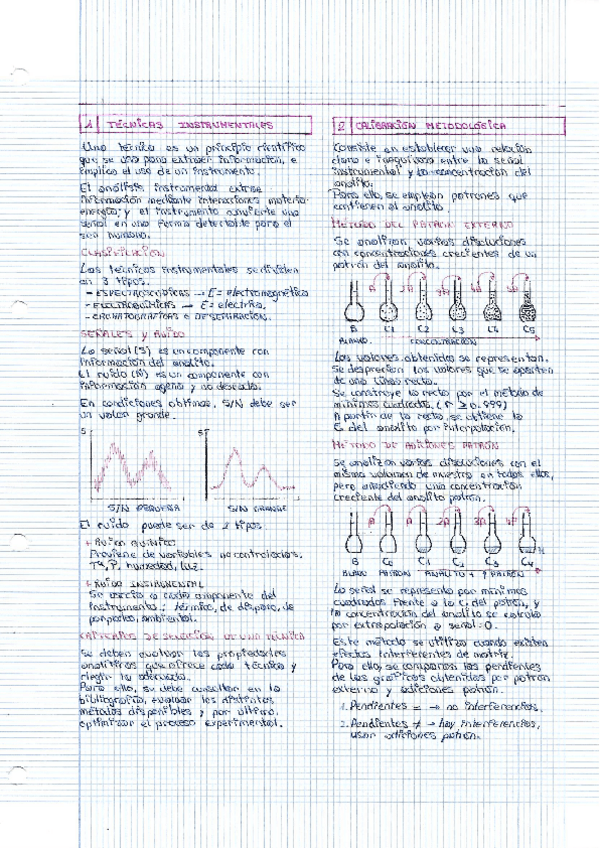 1 TÉCNICAS INSTRUMENTALES
Una técnica es un principio científico
que se usa para extraer información, e
implica el uso de un instrumento.
El análisis instrumental extrae
información mediante interacciones materia-
energía; y el instrumento convierte una
señal en una forma detectable para el
ser humano.
CLASIFICACIÓN
Las técnicas instrumentales se dividen
en 3 tipos.
- ESPECTROSCÓPICAS → E = electromagnética
- ELECTROQUÍMICAS → E = eléctrica.
- CROMATOGRÁFICAS o DE SEPARACIÓN.
SEÑALES y RUIDO
La señal (S) es un componente con
información del analito.
El ruido (N) es un componente con
información ajena y no deseada.
En condiciones óptimas, S/N debe ser
un valor grande.
S
S
S/N PEQUEÑA
S/N GRANDE
El ruido puede ser de 2 tipos.
+ RUIDO QUÍMICO
Proviene de variables no controladas.
Tª, P, humedad, luz.
+ RUIDO INSTRUMENTAL
Se asocia a cada componente del
instrumento: térmico, de disparo, de
parpadeo, ambiental.
CRITERIOS DE SELECCIÓN DE UNA TÉCNICA
Se deben evaluar las propiedades
analíticas que ofrece cada técnica y
elegir la adecuada.
Para ello, se debe consultar en la
bibliografía, evaluar los distintos
métodos disponibles y por último
optimizar el proceso experimental.
2 CALIBRACIÓN METODOLÓGICA
Consiste en establecer una relación
clara e inequívoca entre la señal
instrumental y la concentración del
analito.
Para ello, se emplean patrones que
contienen al analito.
MÉTODO DEL PATRÓN EXTERNO
Se analizan varias disoluciones
con concentraciones crecientes de un
patrón del analito.
B C1 C2 C3 C4 C5
BLANCO CONCENTRACIÓN
Los valores obtenidos se representan.
Se desprecian los valores que se apartan
de una línea recta.
Se construye la recta por el método de
mínimos cuadrados. (r ≥ 0.999)
A partir de la recta, se obtiene la
C del analito por interpolación.
MÉTODO DE ADICIONES PATRÓN
Se analizan varias disoluciones con el
mismo volumen de muestra en todas ellas,
pero añadiendo una concentración
creciente del analito patrón.
B C0 C1 C2 C3 C4
BLANCO PATRÓN ANALITO + PATRÓN
La señal se representa por mínimos
cuadrados frente a la C del patrón, y
la concentración del analito se calcula
por extrapolación a señal = 0.
Este método se utiliza cuando existen
efectos interferentes de matriz.
Para ello, se comparan las pendientes
de las gráficas obtenidas por patrón
externo y adiciones patrón.
1. Pendientes = → no interferencias.
2. Pendientes ≠ → hay interferencias,
usar adiciones patrón.